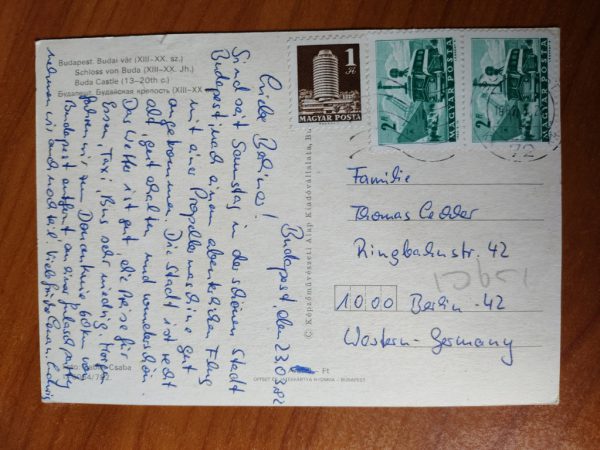 Budapest. Budai vár (XIII-XX. sz.)
Schloss von Buda (XIII-XX. Jh.)
Buda Castle (13-20th c.)
Будапешт. Будайская крепость (XIII-XX
Budapest, den 23.03.82
Sind seit Samstag in der schönen Stadt
Budapest nach einem Flug
mit einer Propellermaschine gut
angekommen. Die Stadt ist recht
alt, gut erhalten und wunderschön.
Das Wetter ist gut, die Preise für
Essen, Taxi, Bus sehr niedrig. Morgen
fahren wir zum Donauknie 60 km von
Budapest entfernt an einer
nehmen wir auch noch teil.
Csaba
© Képzőművészeti Alap Kiadóvállalata, Bu
Ft
OFFSET BUDAPEST
1 Ft
MAGYAR POSTA
2 Ft
MAGYAR POSTA
2 Ft
MAGYAR POSTA
72
Familie
Thomas
Ringbahnstr. 42
1000 Berlin-42
Western-Germany